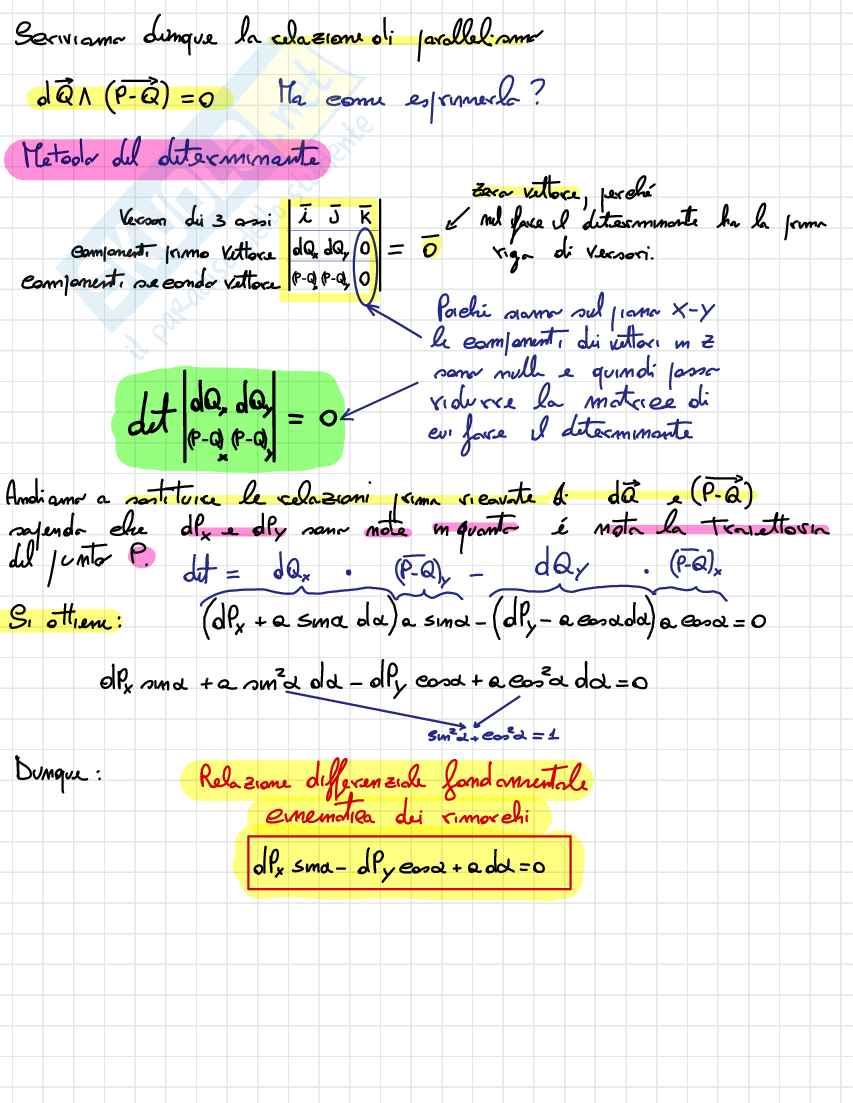 Scriviamo dunque la relazione di parallelismo
dQ⃗ ∧ (P-Q)⃗ = 0 Ma come esprimerla?
Metodo del determinante
Versori dei 3 assi
componenti primo vettore
componenti secondo vettore
| i̅ j̅ k̅ |
| dQx dQy 0 | = 0̅
| (P-Q)x (P-Q)y 0 |
zero vettore, perché
nel fare il determinante ho la prima
riga di versori.
Poiché siamo sul piano x-y
le componenti dei vettori in z
sono nulle e quindi posso
ridurre la matrice di
cui fare il determinante
det | dQx dQy | = 0
| (P-Q)x (P-Q)y |
Andiamo a sostituire le relazioni prima ricavate di dQ⃗ e (P-Q)⃗
sapendo che dPx e dPy sono note in quanto é nota la traiettoria
del punto P.
det = dQx · (P-Q)y - dQy · (P-Q)x
Si ottiene: (dPx + a sinα dα) a sinα - (dPy - a cosα dα) a cosα = 0
dPx sinα + a sin²α dα - dPy cosα + a cos²α dα = 0
sin²α + cos²α = 1
Dunque:
Relazione differenziale fondamentale
cinematica dei rimorchi
dPx sinα - dPy cosα + a dα = 0